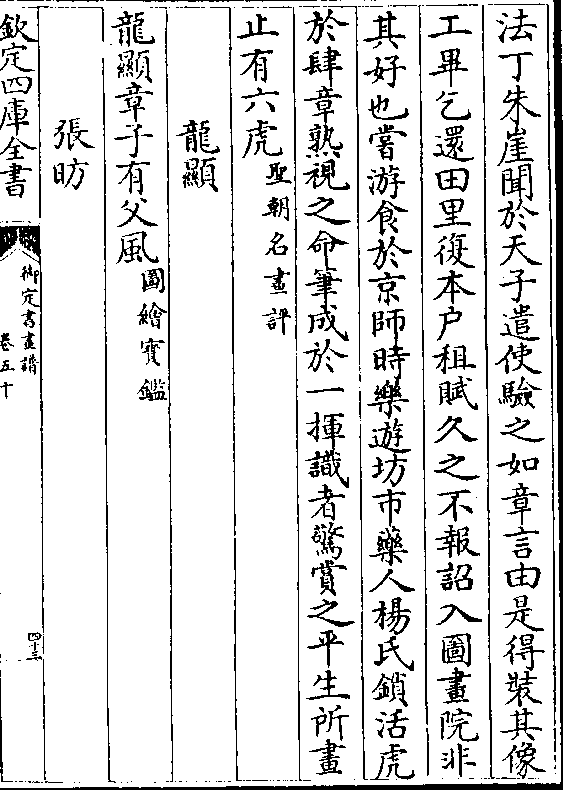 法丁朱崖聞於天子遣使驗之如章言由是得裝其像
工畢乞還田里復本户租賦久之不報詔入圖畫院非
其好也嘗游食於京師時樂遊坊市藥人楊氏鎖活虎
於肆章熟視之命筆成於一揮識者驚賞之平生所畫
止有六虎聖朝名畫評
龍顯
龍顯章子有父風圖繪寶鑑
張昉
欽定四庫全書
御定書畫譜
卷五十
四十三